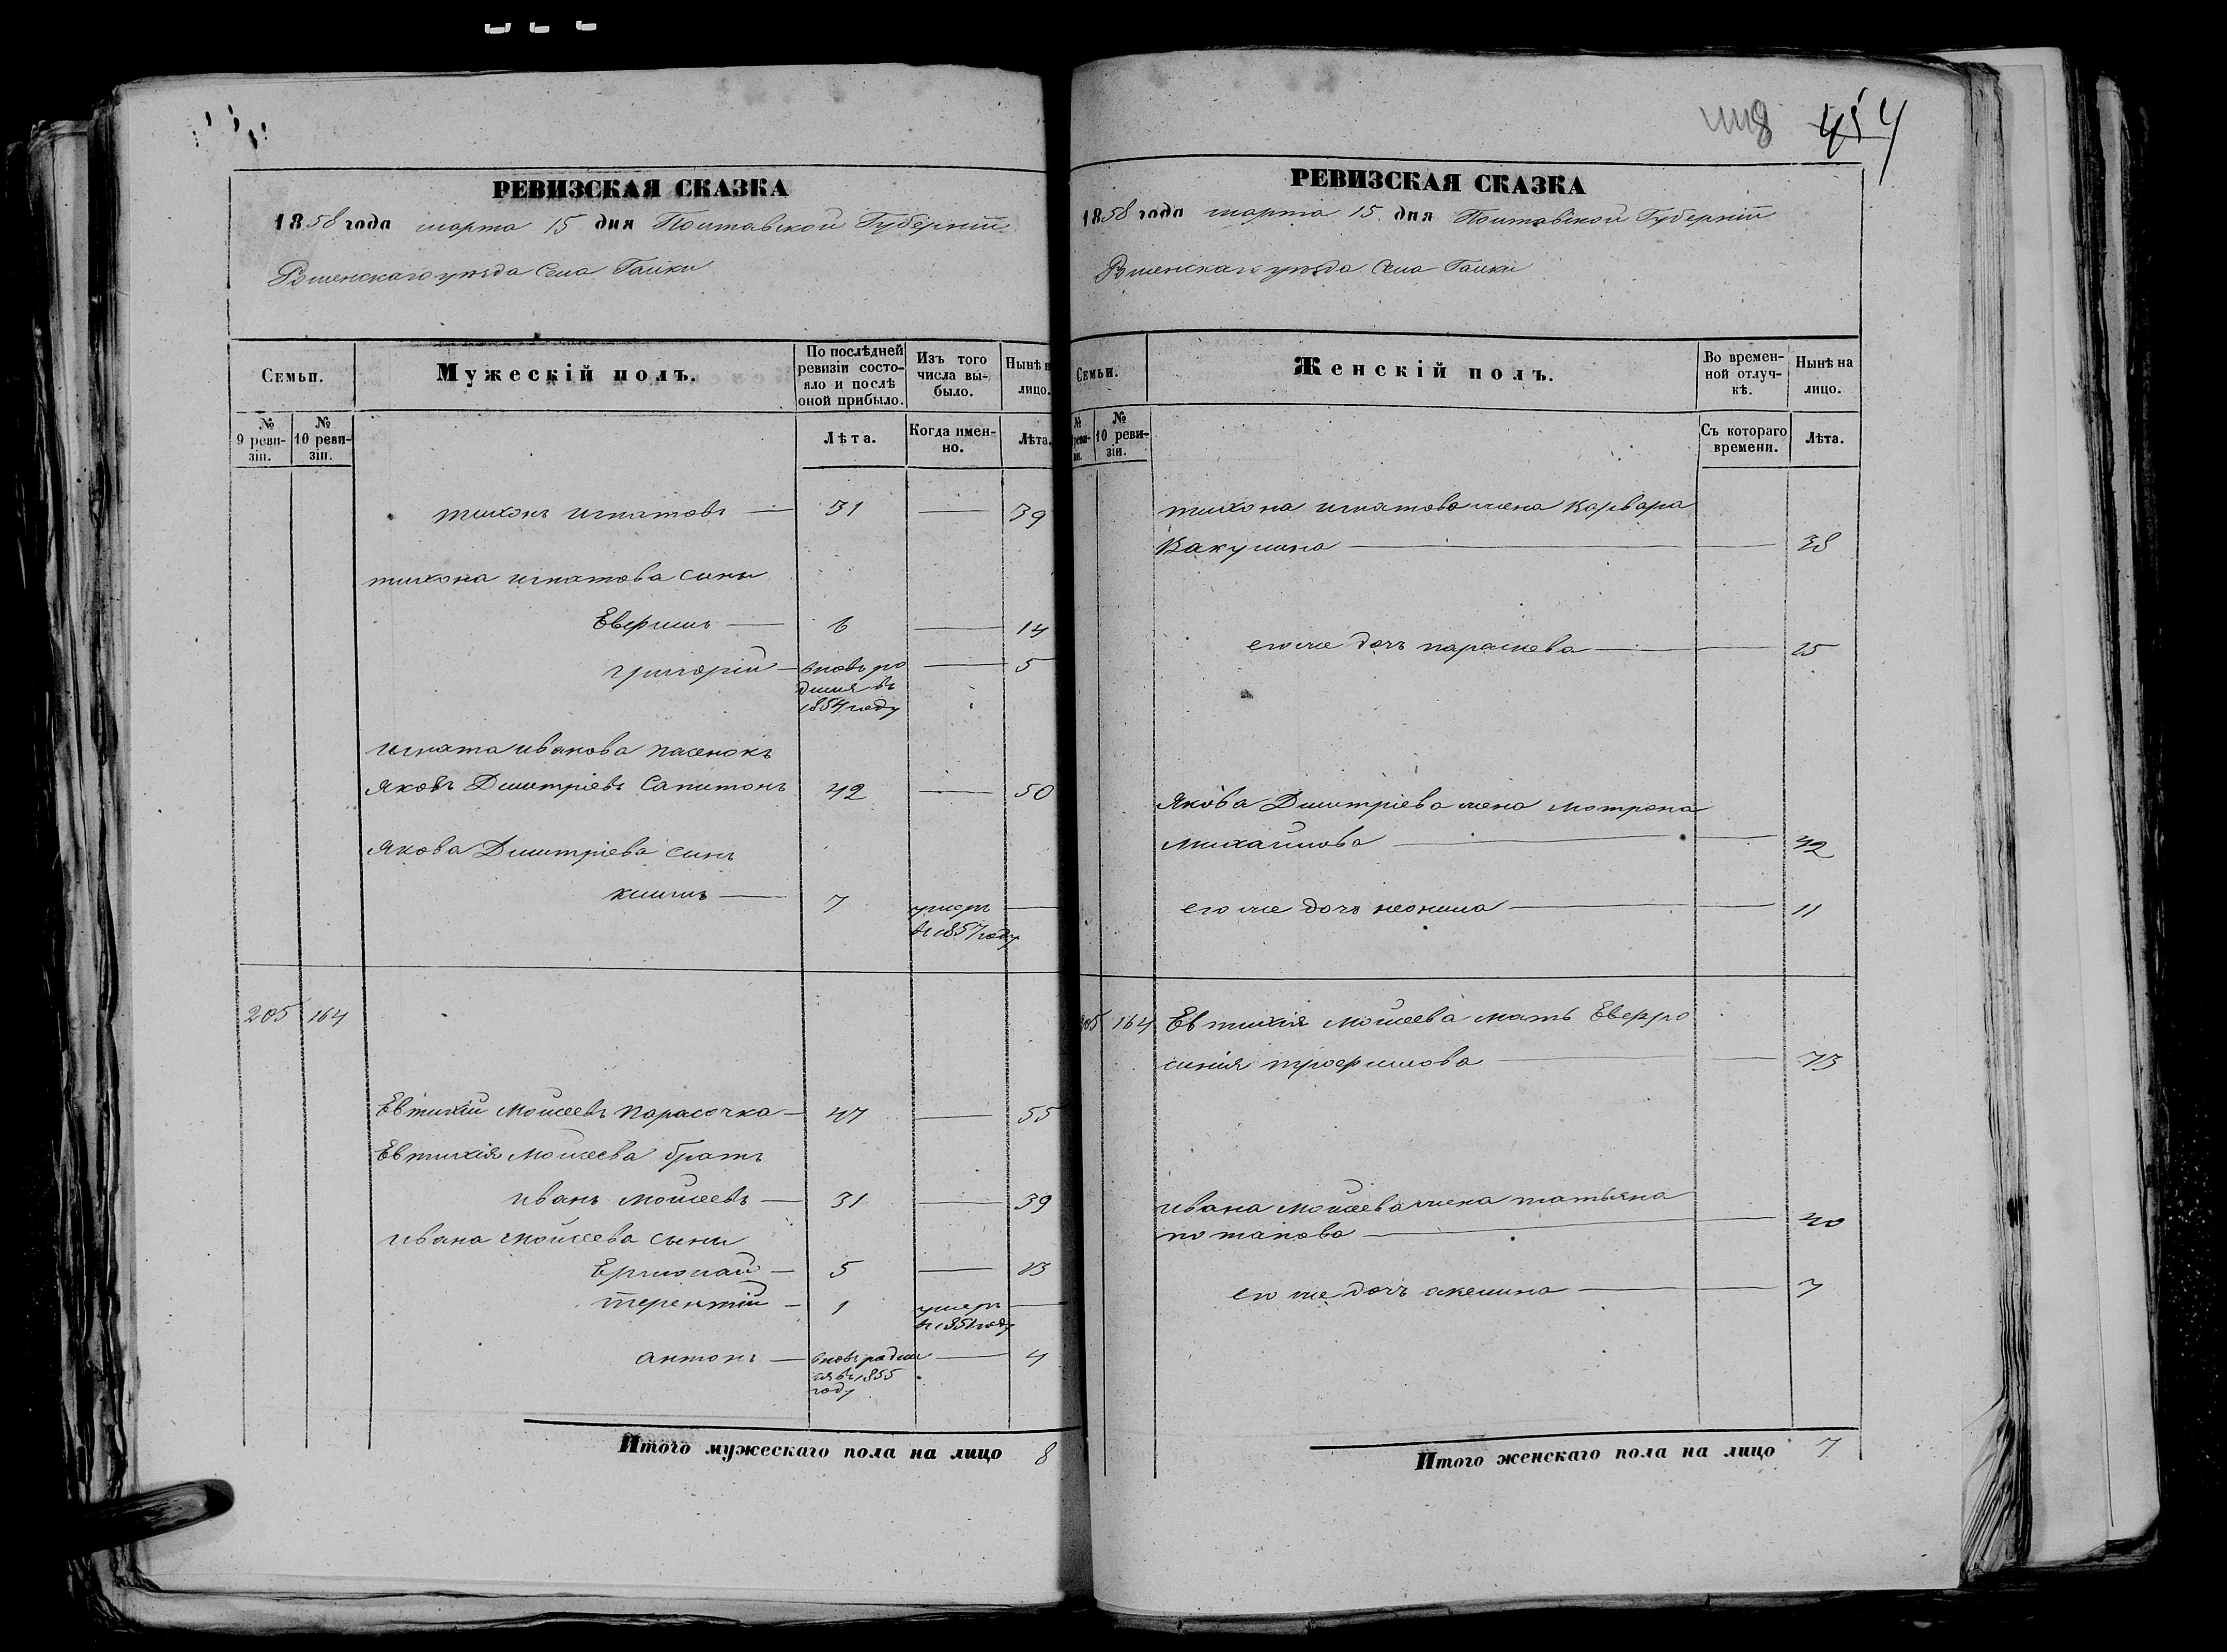 454
РЕВИЗСКАЯ СКАЗКА
1858 года марта 15 дня Полтавской Губерніи
Роменскаго уезда Села Галки
Семьи.
Мужескій полъ.
По послѣдней ревизіи состояло и послѣ оной прибыло.
Изъ того числа выбыло.
Нынѣ на лицо.
№ 9 ревизіи.
№ 10 ревизіи.
Лѣта.
Когда именно.
Лѣта.
тихонъ игнатовъ — 31 — 39
тихона игнатова сины
6 — 14
григорій — вновь ро — 5
дился въ
1854 году
игната иванова пасенокъ
яковъ Дмитріевъ 42 — 50
якова Дмитріева синъ
климъ — 7 умеръ —
въ 1857 году
205 164
Евтихій Моисеевъ Парасочка — 47 — 55
Евтихія Моисеева братъ
иванъ Моисеевъ — 31 — 39
ивана Моисеева сыны
Ермолай — 5 — 13
терентій — 1 умеръ —
въ 1851 году
антонъ — вновь родил — 4
ся въ 1855
году
Итого мужескаго пола на лицо 8
РЕВИЗСКАЯ СКАЗКА
1858 года марта 15 дня Полтавской Губерніи
Роменскаго уезда Села Галки
Семьи.
Женскій полъ.
Во временной отлучкѣ.
Нынѣ на лицо.
№ 10 ревизіи.
Съ котораго времени.
Лѣта.
тихона игнатова жена Варвара
Вакулина — — 38
его же дочь параскева — — 15
якова Дмитріева жена мотрона
михайлова — — 42
его же дочь неонила — — 11
205 164 Евтихія Моисеева мать Евфро
синія трофимова — — 73
ивана Моисеева жена татьяна
потапова — — 40
его же дочь акелина — — 7
Итого женскаго пола на лицо 7